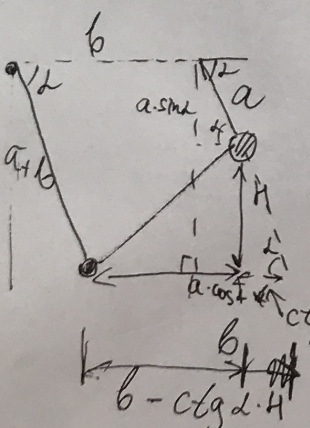 b
α
α
a
a·sinα
a+b
H
α
a·cosα
ctg
b
b - ctgα·H